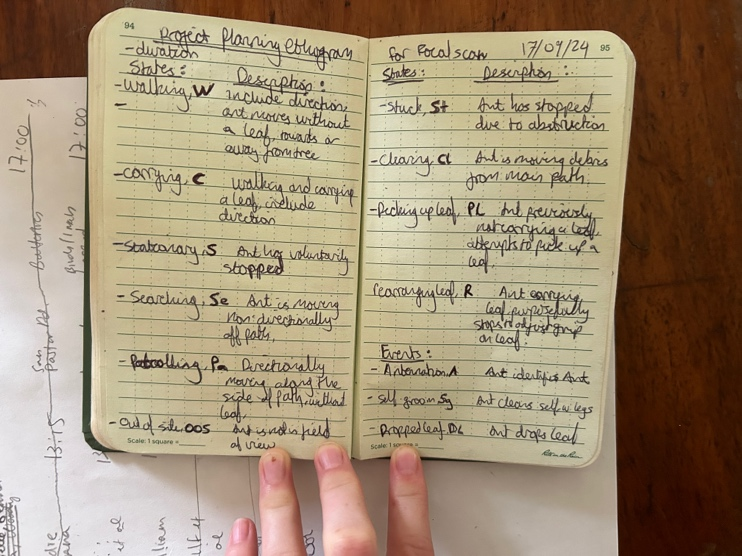 94
Project Planning ethogram
- duration
States:
Description:
- Walking, W
Include direction,
ant moves without
a leaf, towards or
away from tree
-
- Carrying, C
Walking and carrying
a leaf, include
direction
- Stationary, S
Ant has voluntarily
stopped
- Searching, Se
Ant is moving
non-directionally
off path.
- Patrolling, Pa
Directionally
moving along the
side of path, without
leaf.
- Out of site, OOS
Ant is not in field
of view
Scale: 1 square =
for Focal scan
17/09/24
95
States:
Description:
- Stuck, St
Ant has stopped
due to obstruction
- Clearing, Cl
Ant is moving debris
from main path.
- Picking up leaf, PL
Ant previously
not carrying a leaf,
attempts to pick up a
leaf.
rearranging leaf, R
Ant carrying
leaf, purposefully
stops to adjust grip
on leaf.
Events:
- Antennation, A
Ant identifies Ant
- Self groom, Sg
Ant cleans self w legs
- Dropped leaf, DL
Ant drops leaf
Scale: 1 square =
17:00
Butterflies
17:00
birds/lizards
13:15